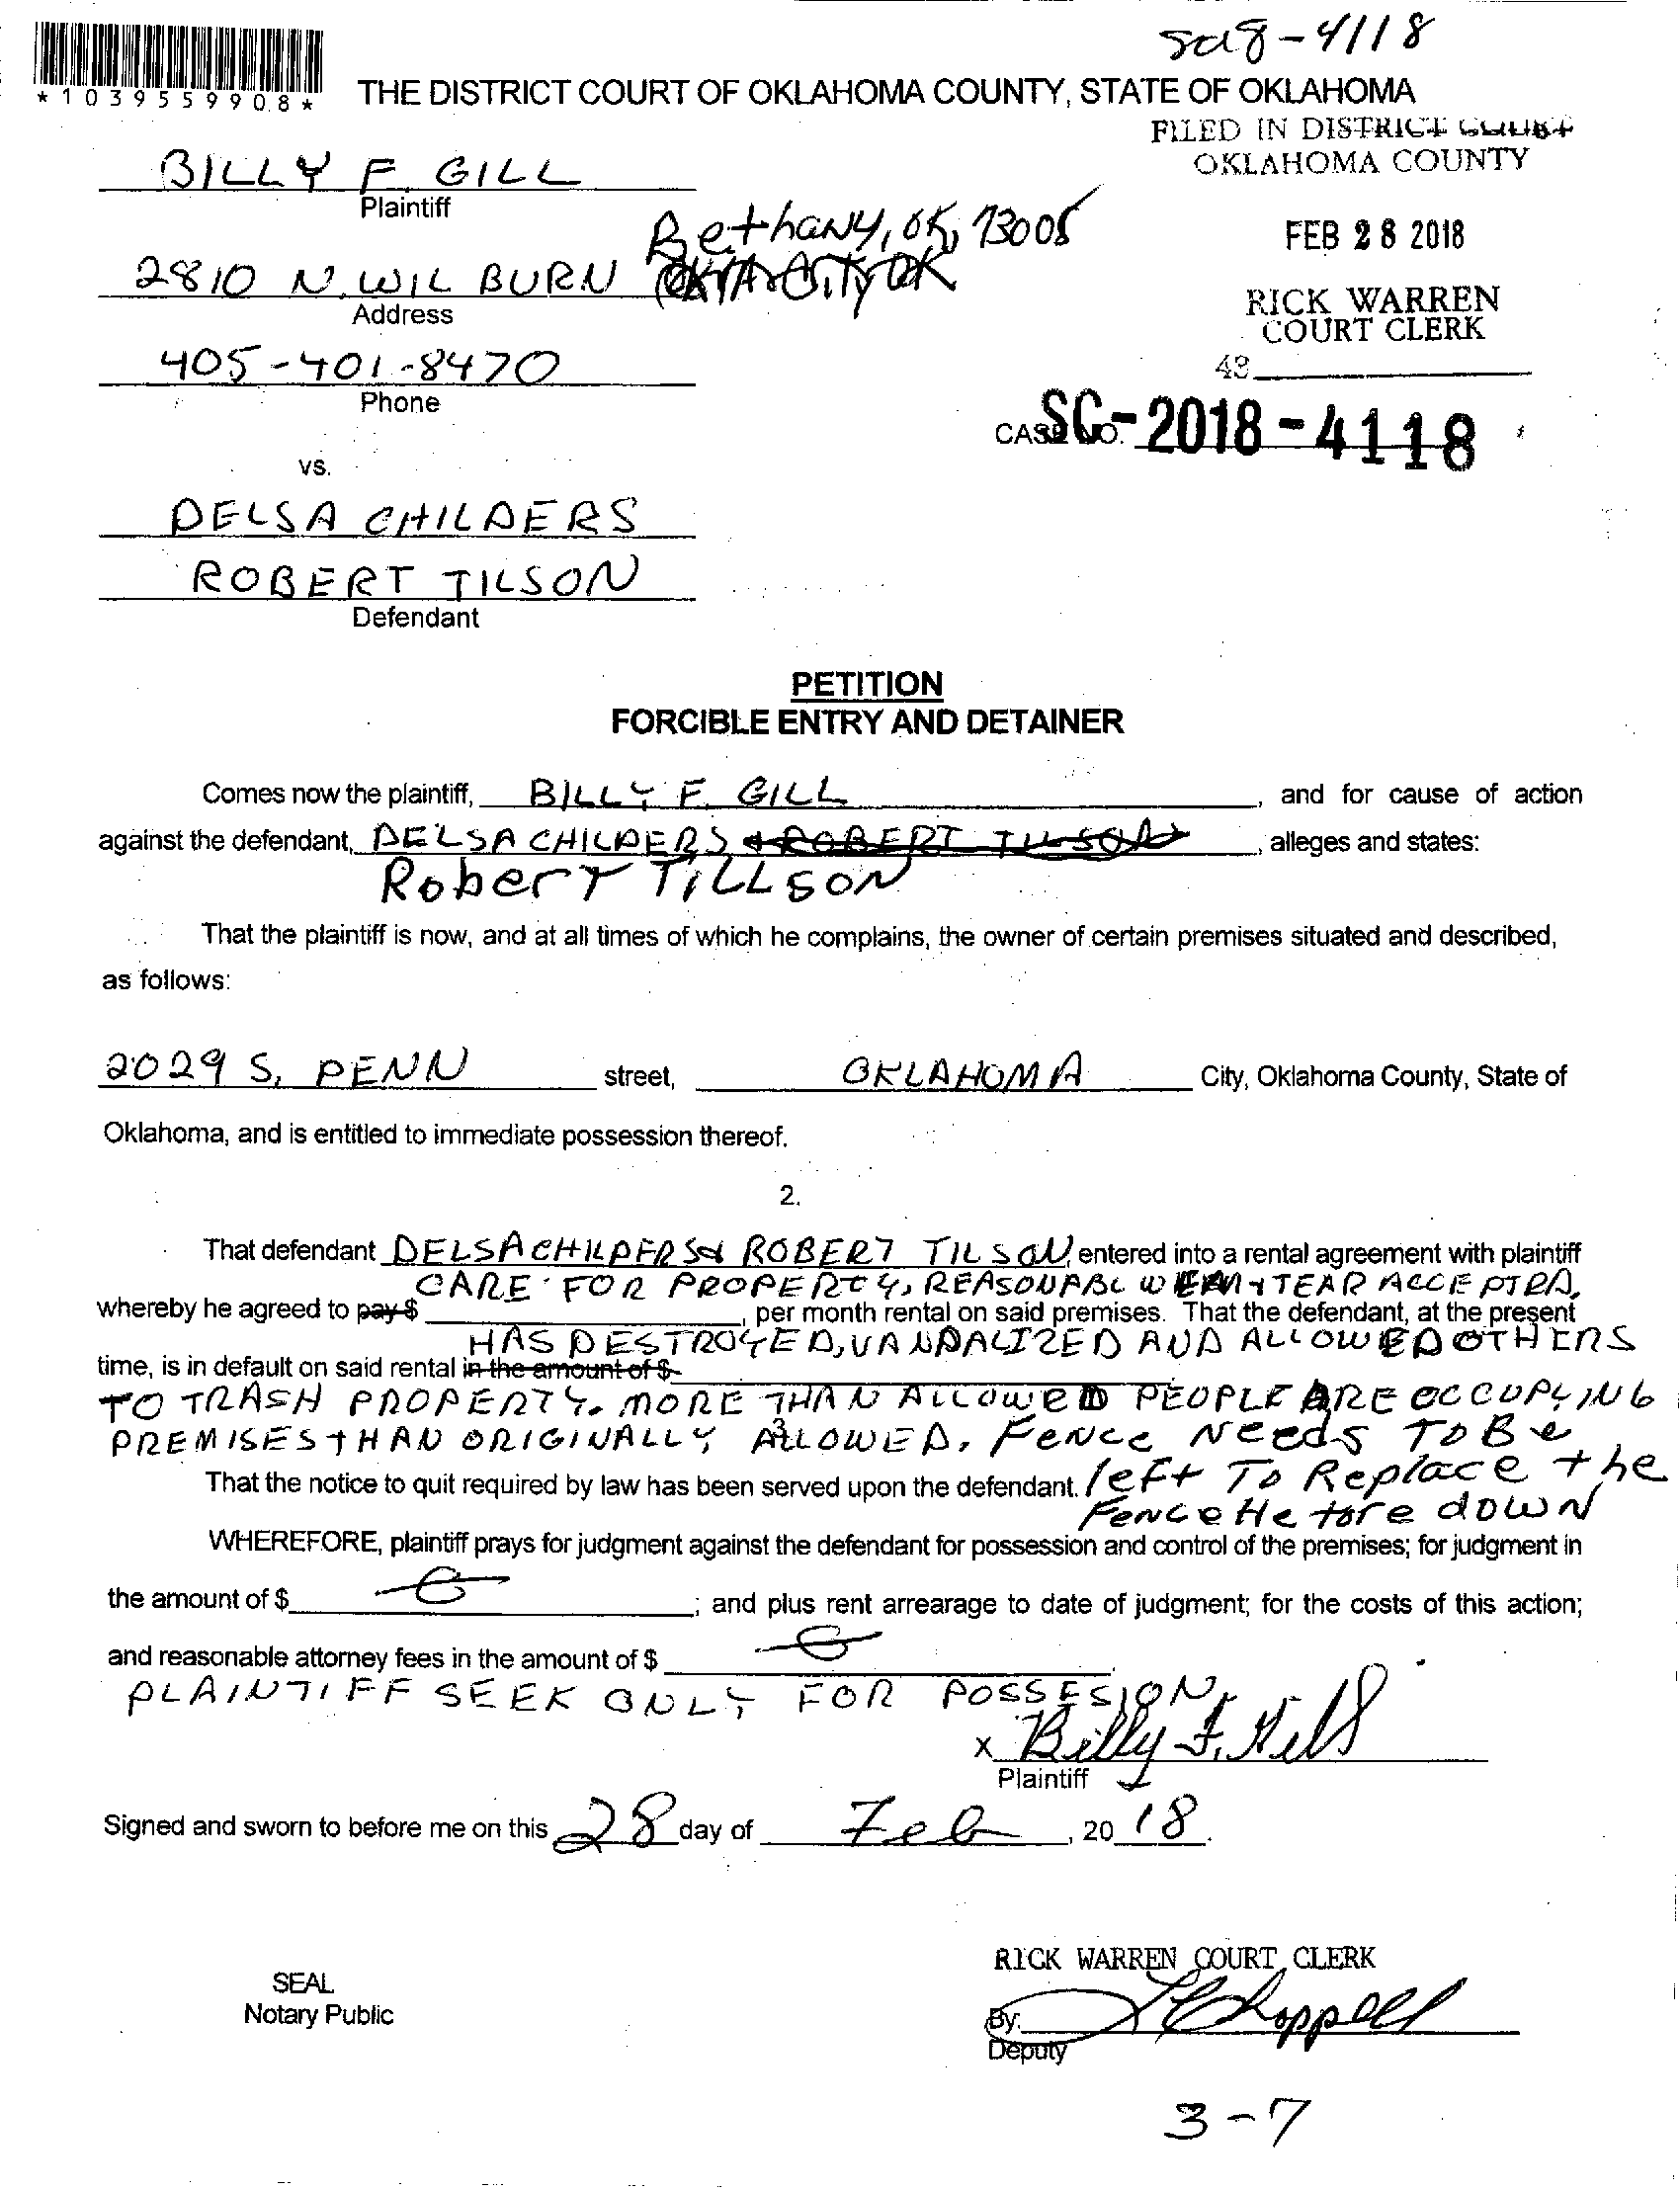 SC18-4118
*1039559908*
THE DISTRICT COURT OF OKLAHOMA COUNTY, STATE OF OKLAHOMA
FILED IN DISTRICT COURT
OKLAHOMA COUNTY
BILLY F. GILL
Plaintiff
Bethany, OK, 73008
FEB 28 2018
2810 N. WILBURN OKLA CITY OK
Address
RICK WARREN
COURT CLERK
405-401-8470
43
Phone
CASE NO. SC-2018-4118
vs.
DELSA CHILDERS
ROBERT TILSON
Defendant
PETITION
FORCIBLE ENTRY AND DETAINER
Comes now the plaintiff, BILLY F. GILL, and for cause of action
against the defendant, DELSA CHILDERS & ROBERT TILSON, alleges and states:
Robert TiLLSON
That the plaintiff is now, and at all times of which he complains, the owner of certain premises situated and described,
as follows:
2029 S. PENN street, OKLAHOMA City, Oklahoma County, State of
Oklahoma, and is entitled to immediate possession thereof.
2.
That defendant DELSA CHILDERS & ROBERT TILSON, entered into a rental agreement with plaintiff
CARE FOR PROPERTY, REASONABL WEAR & TEAR ACCEPTED.
whereby he agreed to pay $, per month rental on said premises. That the defendant, at the present
HAS DESTROYED, VANDALIZED AND ALLOWED OTHERS
time, is in default on said rental in the amount of $
TO TRASH PROPERTY. MORE THAN ALLOWED PEOPLE ARE OCCUPYING
PREMISES THAN ORIGINALLY ALLOWED. Fence Needs To Be
That the notice to quit required by law has been served upon the defendant. left To Replace the
Fence He tore down
WHEREFORE, plaintiff prays for judgment against the defendant for possession and control of the premises; for judgment in
the amount of $ 0; and plus rent arrearage to date of judgment; for the costs of this action;
and reasonable attorney fees in the amount of $ 0.
PLAINTIFF SEEK ONLY FOR POSSESION
x Billy F. Gill
Plaintiff
Signed and sworn to before me on this 28 day of Feb, 20 18.
RICK WARREN COURT CLERK
SEAL
Notary Public
By:
Deputy
3-7